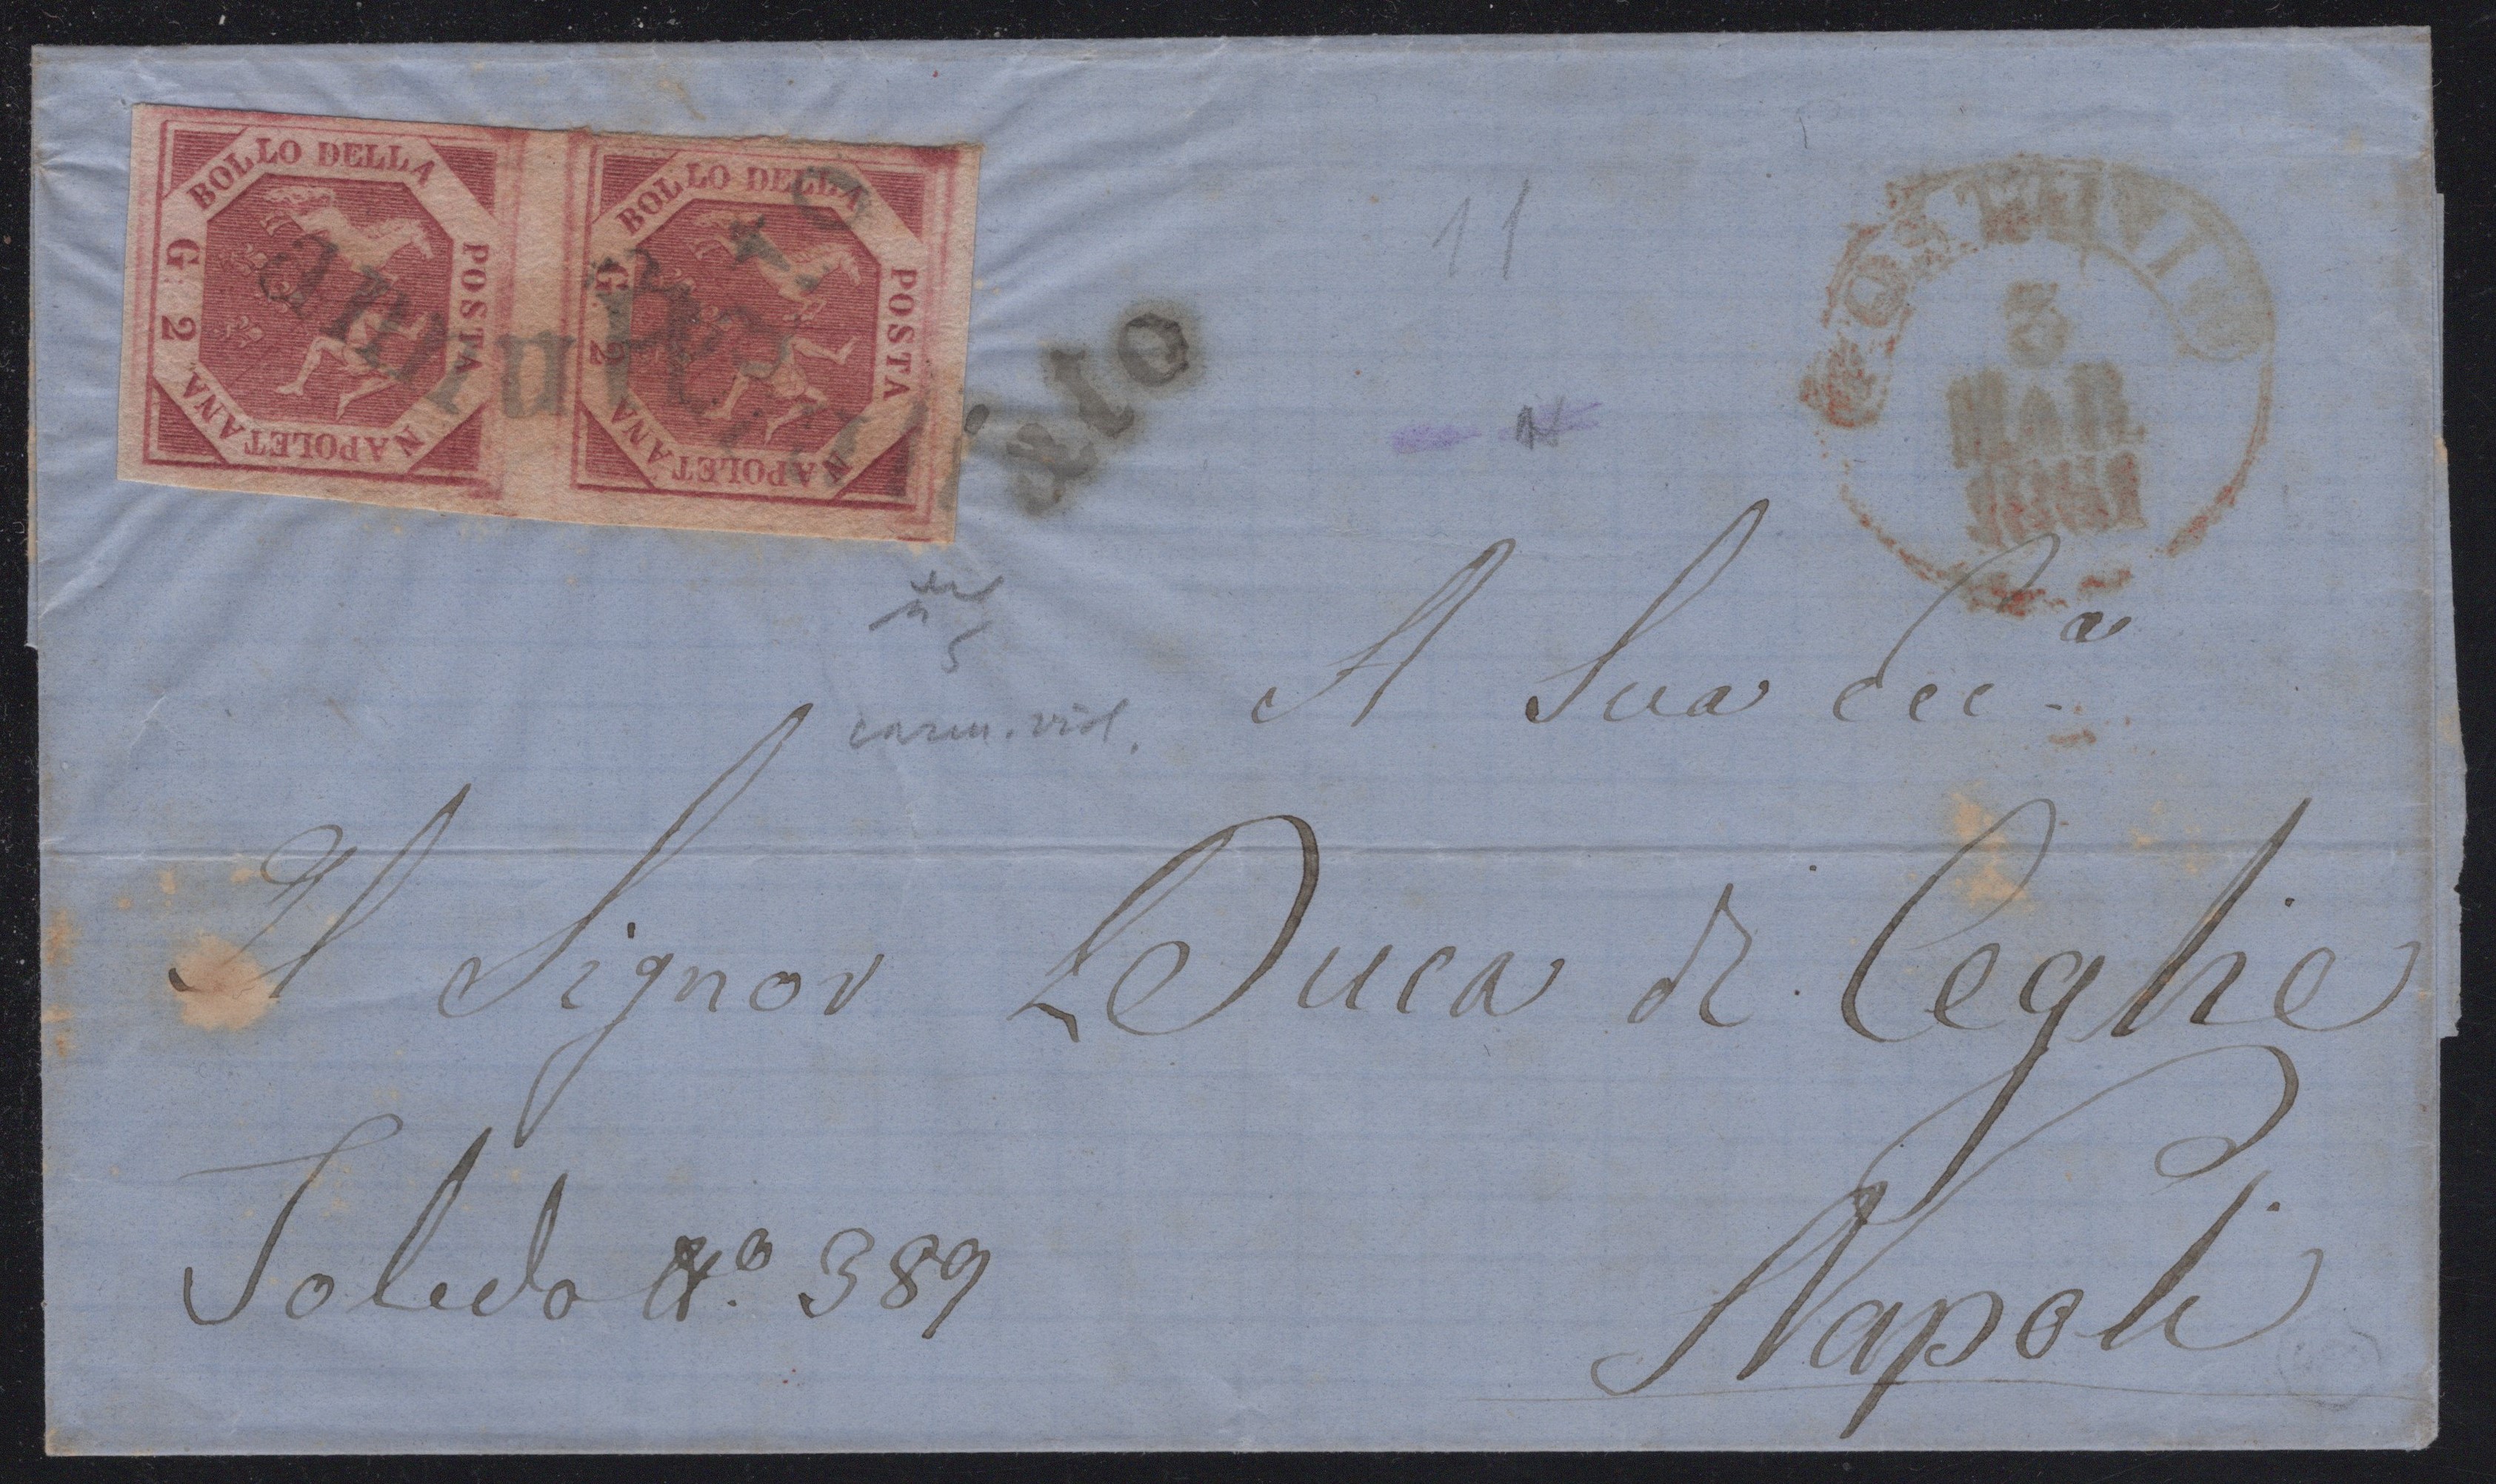 BOLLO DELLA POSTA NAPOLETANA G 2
BOLLO DELLA POSTA NAPOLETANA G 2
annullato
annullato
3
MAR
11
5
carm. viol.
A Sua Ecc.ª
Il Signor Duca di Ceglie
Toledo Nº. 389
Napoli